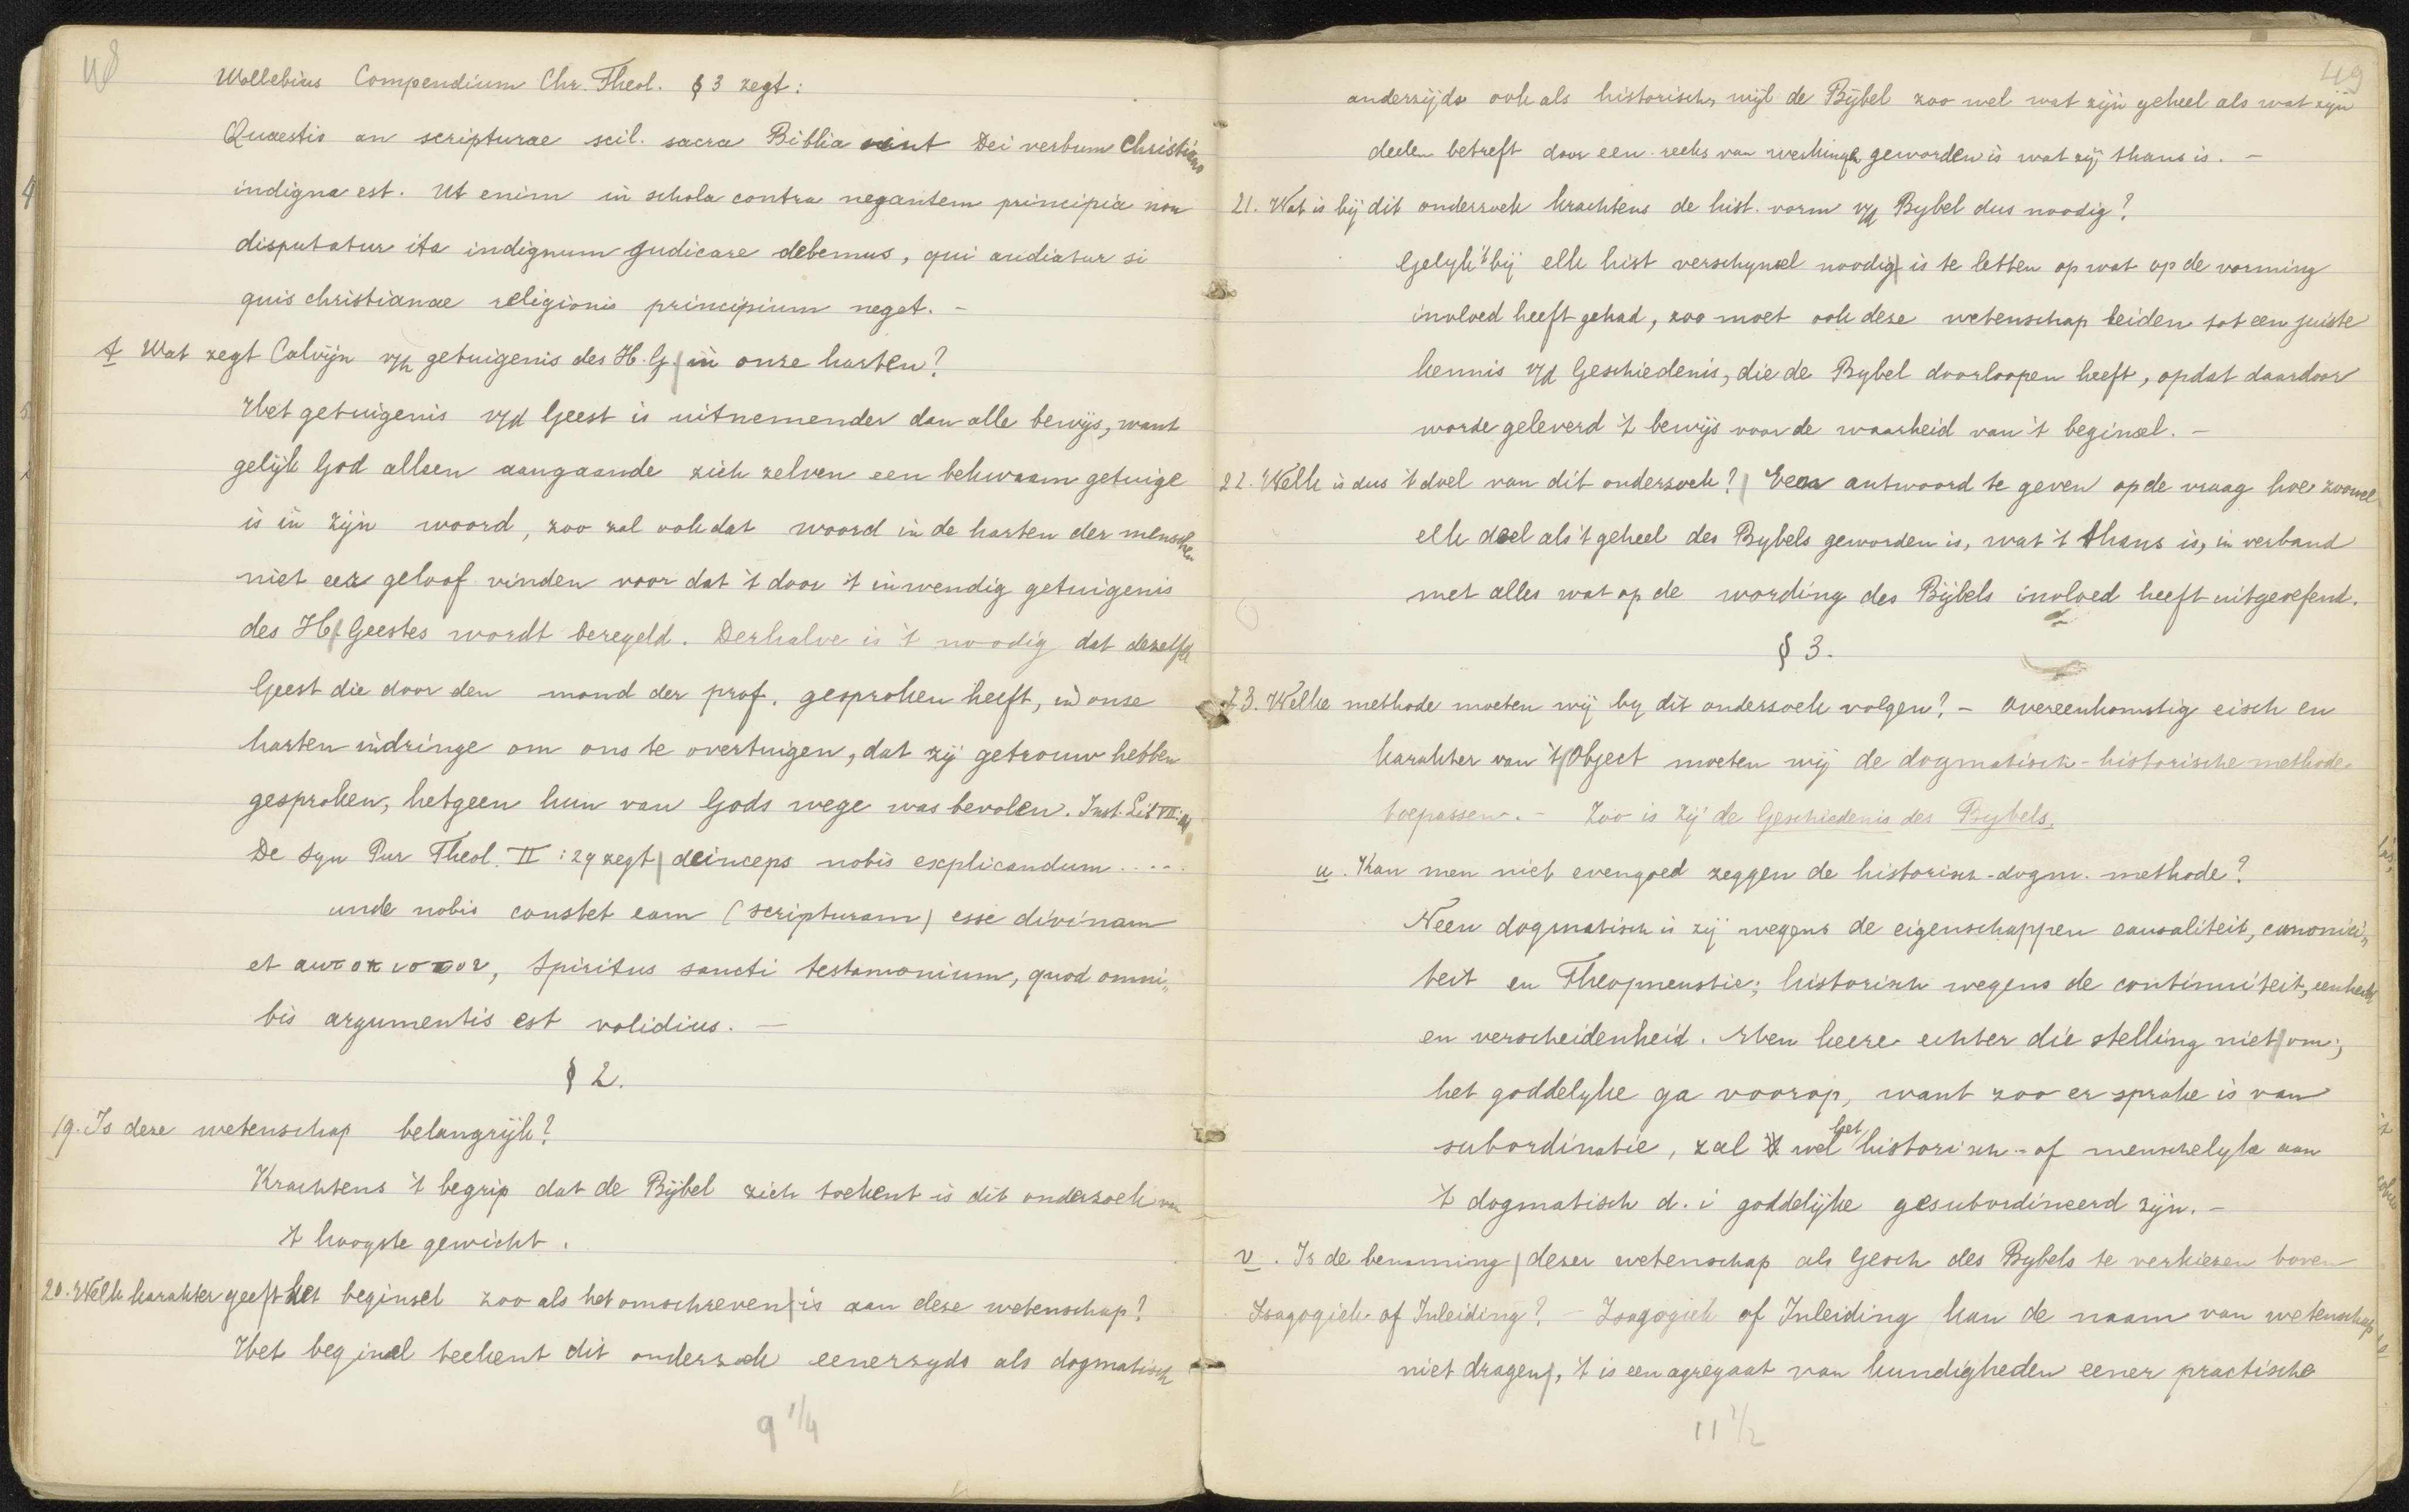 48
Wollebius Compendium Chr. Theol. § 3 zegt:
Quaestio an scripturae scil. sacra Biblia sint Dei verbum Christiano
indigna est. Ut enim in schola contra negantem principia non
disputatur ita indignum judicare debemus, qui audiatur si
quis christianae religionis principium neget. -
t Wat zegt Calvijn v/h getuigenis des H. G. in onze harten?
Het getuigenis v/d Geest is uitnemender dan alle bewijs, want
gelijk God alleen aangaande zich zelven een bekwaam getuige
is in zijn woord, zoo zal ook dat woord in de harten der menschen
niet eer geloof vinden voor dat 't door 't inwendig getuigenis
des H. Geestes wordt bezegeld. Derhalve is 't noodig dat dezelfde
Geest die door den mond der prof. gesproken heeft, in onze
harten indringe om ons te overtuigen, dat zij getrouw hebben
gesproken, hetgeen hun van Gods wege was bevolen. Inst. Lib VII:
De Syn Pur Theol. II : 29 zegt deinceps nobis explicandum .....
unde nobis constet eam (scripturam) esse divinam
et αυτοπιστον, Spiritus sancti testamonium, quod omni„
bis argumentis est validius. —
§ 2.
19. Is deze wetenschap belangrijk?
Krachtens 't begrip dat de Bijbel zich toekent is dit onderzoek van
't hoogste gewicht.
20. Welk karakter geeft het beginsel zoo als het omschreven is aan deze wetenschap?
Het beginsel teekent dit onderzoek eenerzyds als dogmatisch
9 1/4
49
anderzijds ook als historisch, wijl de Bijbel zoo wel wat zijn geheel als wat zijn
deelen betreft door een reeks van werkingen geworden is wat zij thans is. -
21. Wat is bij dit onderzoek krachtens de hist. vorm v/d Bybel dus noodig?
Gelyk 't bij elk hist verschynsel noodig is te letten op wat op de vorming
invloed heeft gehad, zoo moet ook deze wetenschap leiden tot een juiste
kennis v/d Geschiedenis, die de Bybel doorloopen heeft, opdat daardoor
worde geleverd 't bewijs voor de waarheid van 't beginsel. -
22. Welk is dus 't doel van dit onderzoek? Een antwoord te geven op de vraag hoe zoowel
elk deel als 't geheel des Bybels geworden is, wat 't thans is, in verband
met alles wat op de wording des Bijbels invloed heeft uitgeoefend.
§ 3.
23. Welke methode moeten wij by dit onderzoek volgen? - Overeenkomstig eisch en
karakter van 't Object moeten wij de dogmatisch-historische methode
toepassen. - Zoo is zij de Geschiedenis des Bybels.
u. Kan men niet evengoed zeggen de historisch-dogm. methode?
Neen dogmatisch is zij wegens de eigenschappen causaliteit, canonici„
teit en Theopneustie; historisch wegens de continuiteit, eenheid
en verscheidenheid. Men keere echter die stelling niet om;
het goddelyke ga voorop, want zoo er sprake is van
subordinatie, zal wel het historisch - of menschelyke aan
't dogmatisch d. i goddelijke gesubordineerd zijn. -
v. Is de benaming dezer wetenschap als Gesch des Bybels te verkiezen boven
Isagogiek of Inleiding? - Isagogiek of Inleiding kan de naam van wetenschap
niet dragen, 't is een agregaat van kundigheden eener practische
11 1/2